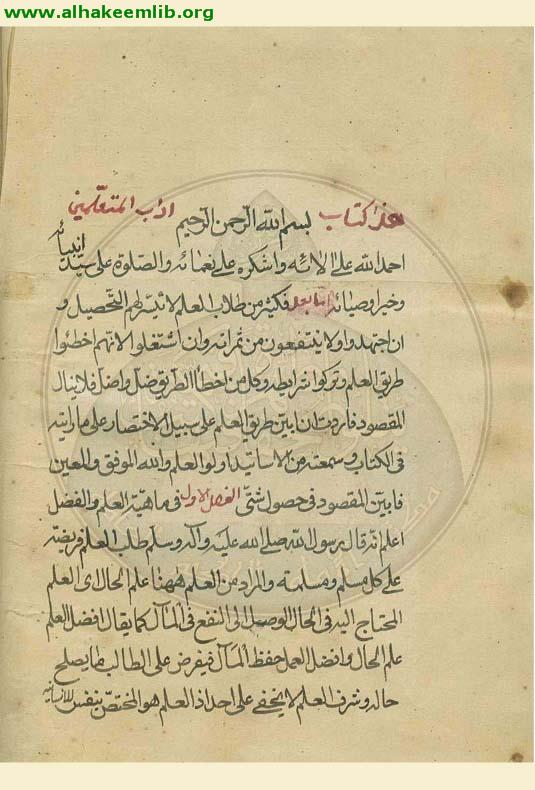 www.alhakeemlib.org
هذا كتاب بسم الله الرحمن الرحيم اداب المتعلمين
احمد الله على الائه واشكره على نعمائه والصلوة على سيد انبيائه
وخير اوصيائه اما بعد فكثير من طلاب العلم لا يتيسر لهم التحصيل و
ان اجتهدوا ولا ينتفعون من ثمراته وان اشتغلوا لانهم اخطئوا
طريق العلم وتركوا شرايطه وكل من اخطأ الطريق ضل واضل فلا ينال
المقصود فاردت ان ابين طريق العلم على سبيل الاختصار على ما رايته
فى الكتاب وسمعته من الاساتيد اولو العلم والله الموفق والمعين
فابين المقصود فى حصول شتى الفصل الاول فى ماهية العلم والفضل
اعلم انه قال رسول الله صلى الله عليه وآله وسلم طلب العلم فريضة
على كل مسلم ومسلمة والمراد من العلم ههنا علم الحال اى العلم
المحتاج اليه فى الحال الوصل الى النفع فى المآل كما يقال افضل العلم
علم الحال وافضل العمل حفظ المآل فيفرض على الطالب ما يصلح
حاله وشرف العلم لا يخفى على احد اذ العلم هو المختص بنفس الانسانية